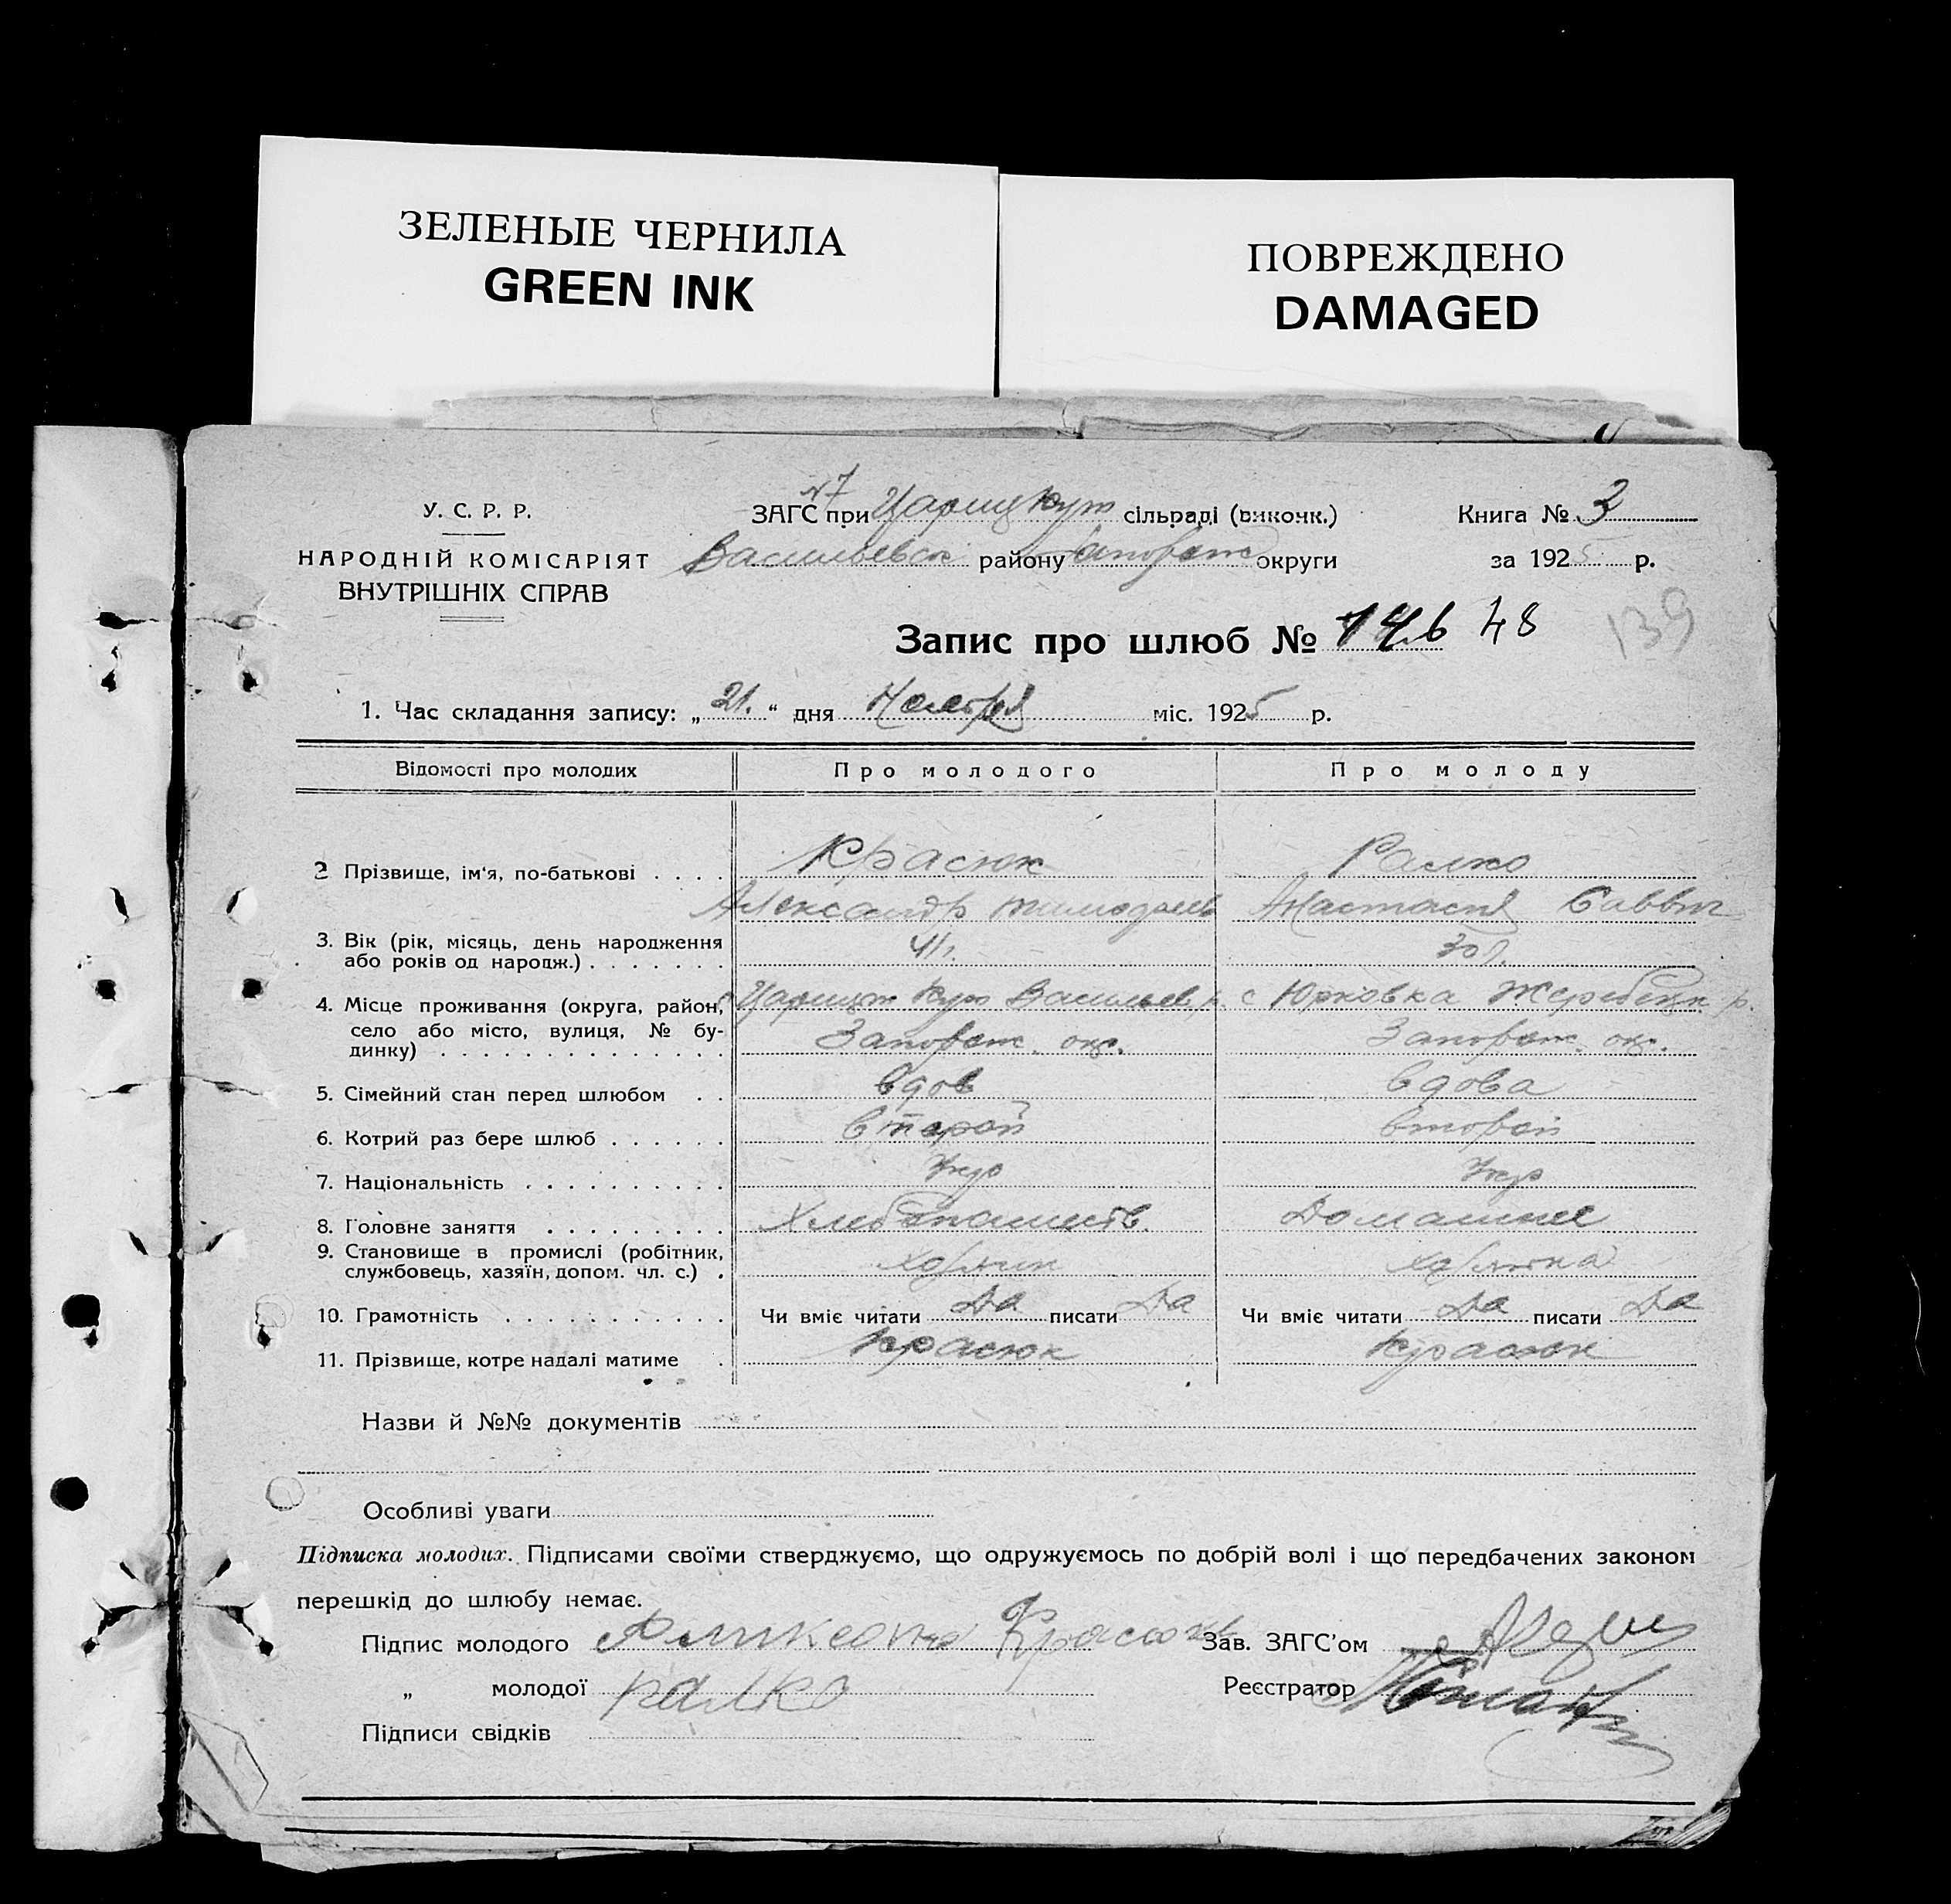 ЗЕЛЕНЫЕ ЧЕРНИЛА
GREEN INK
ПОВРЕЖДЕНО
DAMAGED
У. С. Р. Р.
НАРОДНІЙ КОМІСАРІЯТ
ВНУТРІШНІХ СПРАВ
№7
ЗАГС при Царицкут сільраді (виконк.)
Васильевск району Запорож округи
Книга № 3
за 1925 р.
Запис про шлюб № 146 48
139
1. Час складання запису: „21.“ дня Ноября міс. 1925 р.
Відомості про молодих Про молодого Про молоду
2 Прізвище, ім'я, по-батькові . . . . Красюк Галко
Александр Анастасія Саввит
3. Вік (рік, місяць, день народження
або років од народж.) . . . . . . . 41г. 30 г.
4. Місце проживання (округа, район, Царицын Кут Васильев. р. с Юрковка Жеребецк р.
село або місто, вулиця, № бу-
динку) . . . . . . . . . . . . . . Запорож. окр. Запорож. окр.
5. Сімейний стан перед шлюбом . . вдов вдова
6. Котрий раз бере шлюб . . . . . . второй второй
7. Національність . . . . . . . . . . Укр Укр
8. Головне заняття . . . . . . . . . Хлебопашеств. Домашнее
9. Становище в промислі (робітник,
службовець, хазяїн, допом. чл. с.) .
10. Грамотність . . . . . . . . . . . Чи вміє читати Да писати Да Чи вміє читати Да писати Да
11. Прізвище, котре надалі матиме . Красюк Красюк
Назви й №№ документів
Особливі уваги
Підписка молодих. Підписами своїми стверджуємо, що одружуємось по добрій волі і що передбачених законом
перешкід до шлюбу немає.
Підпис молодого Красюк Зав. ЗАГС'ом
„ молодої галко Реєстратор
Підписи свідків